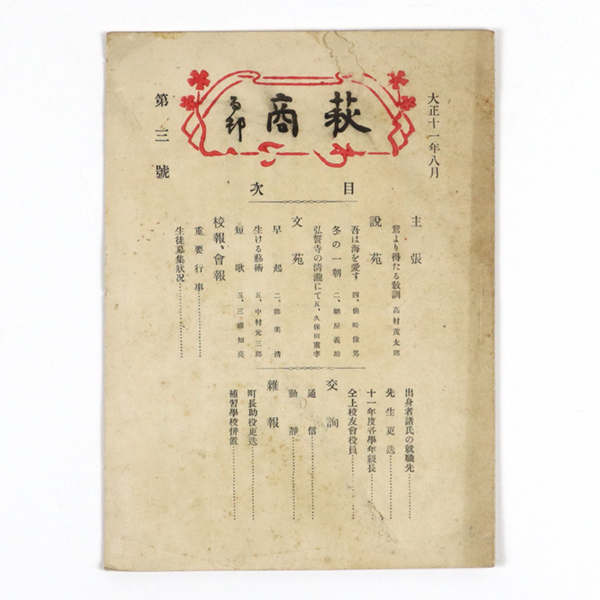 大正十一年八月
萩商
第三號
目次
主張
鶯より得たる敎訓 高村茂太郎
說苑
吾は海を愛す 四、仙崎俊男
冬の一朝 二、網屋義治
弘誓寺の清瀧にて 五、久保田重孝
文苑
早起 二、能美濟
生ける藝術 五、中村元三郎
短歌 五、三浦知亮
校報、會報
重要行事
生徒募集狀況
出身者諸氏の就職先
先生更迭
十一年度各學年級長
仝上校友會役員
交詢
通信
動靜
雜報
町長助役更迭
補習學校倂置